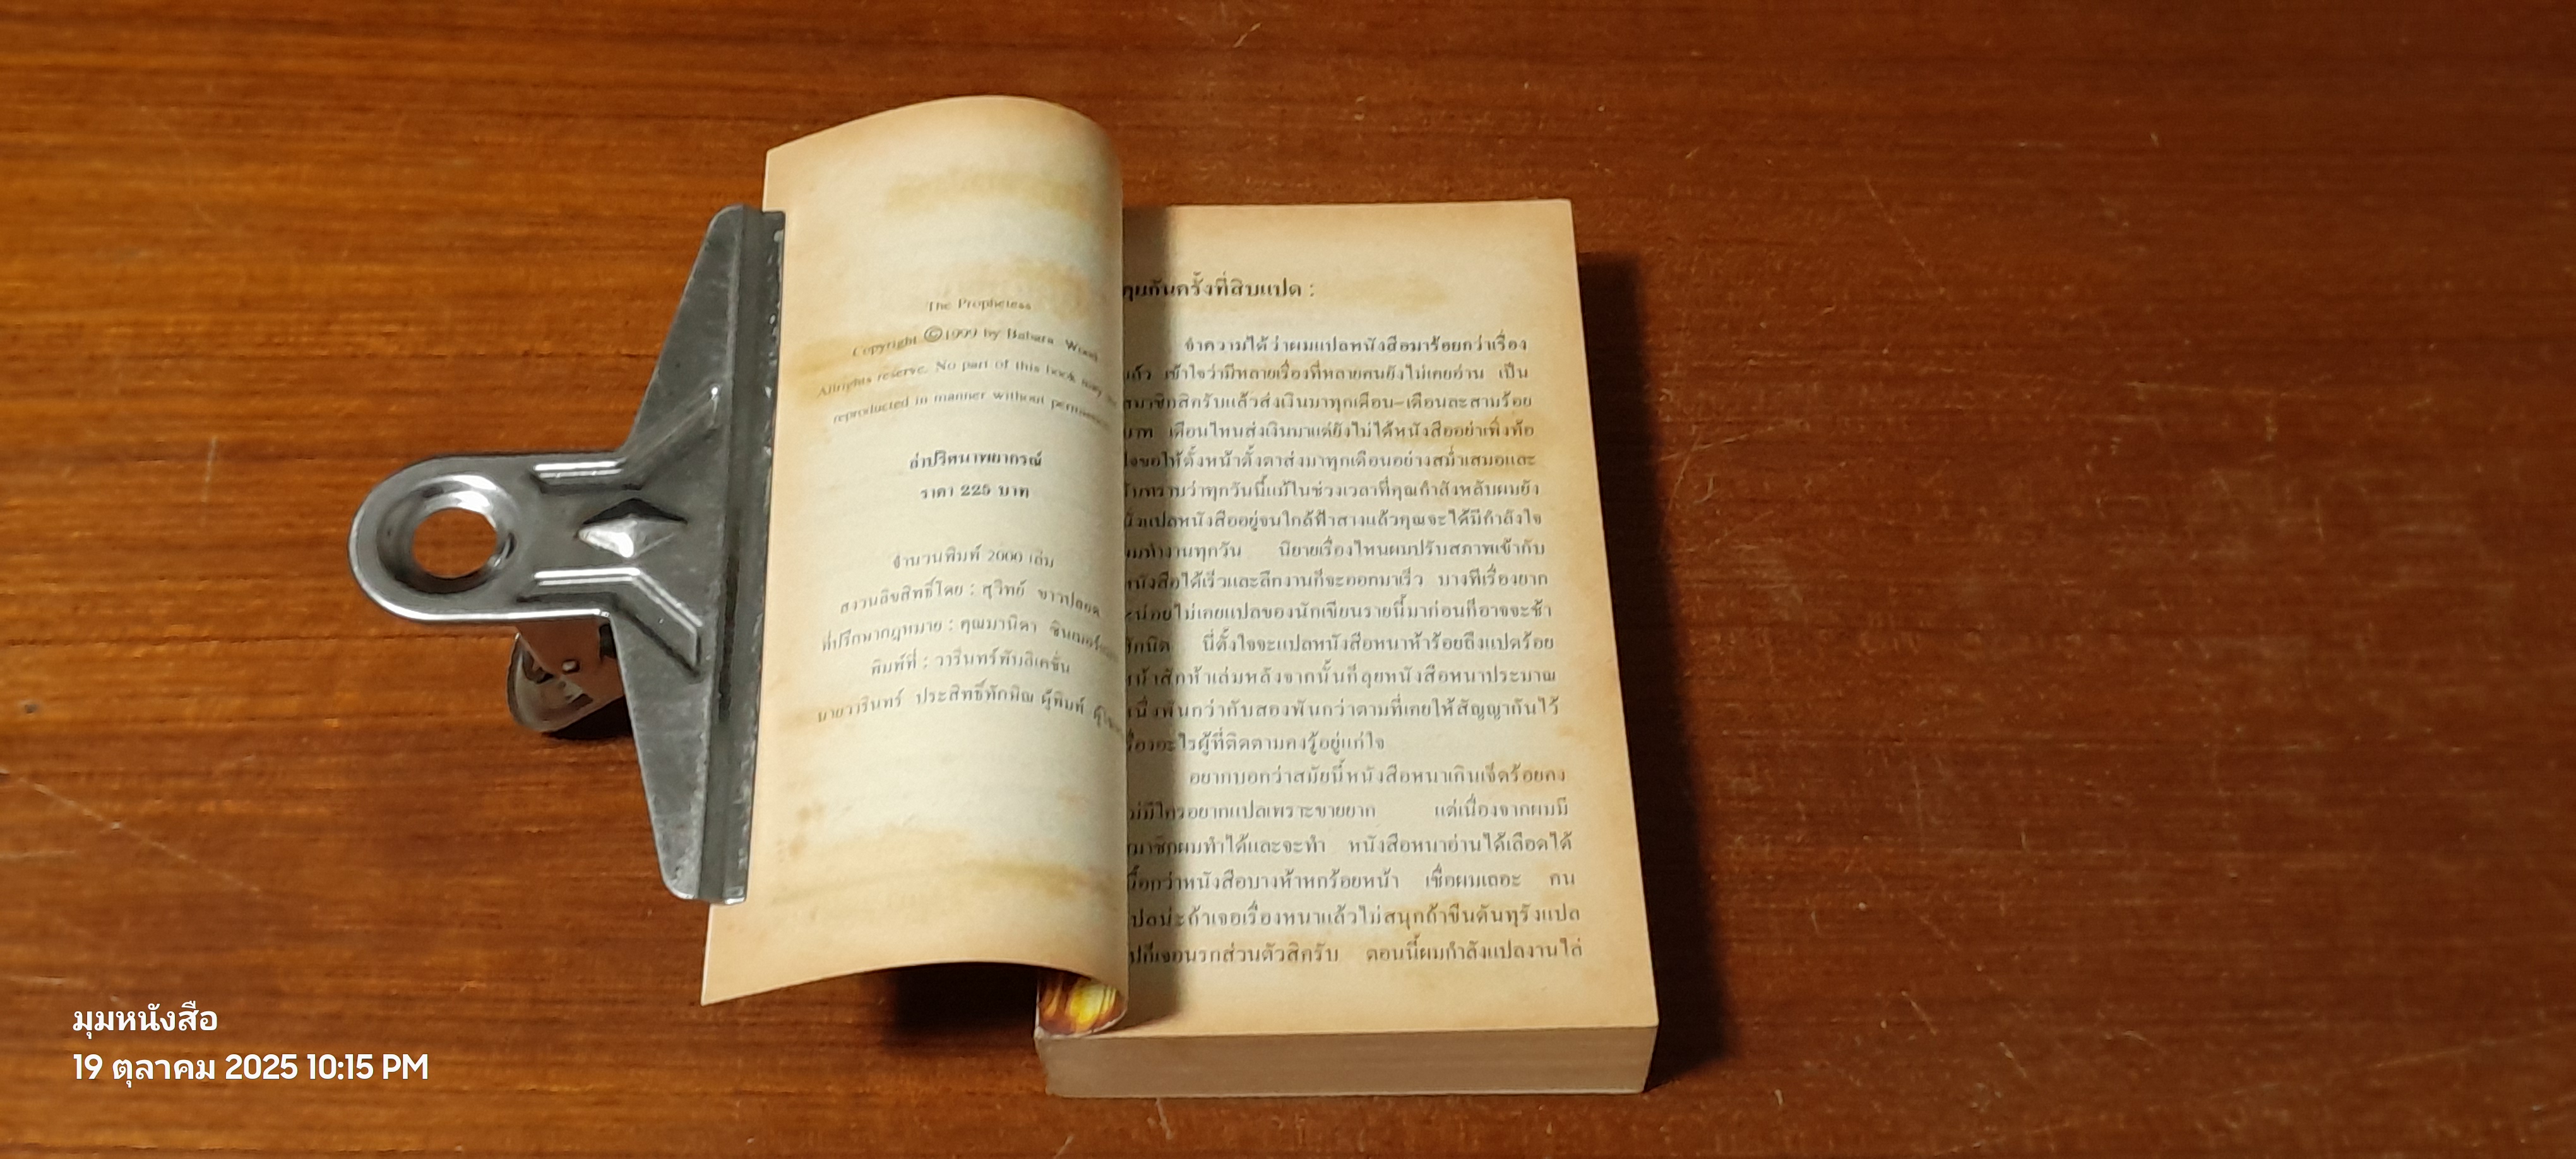 The Prophetess
Copyright ©1999 by Babara Wood
Allrights reserve. No part of this book may
reproduced in manner without
ล่าปริศนาพยากรณ์
ราคา 225 บาท
จำนวนพิมพ์ 2000 เล่ม
สงวนลิขสิทธิ์โดย : สุวิทย์ ขาวปลอด
ที่ปรึกษากฎหมาย : คุณมานิดา
พิมพ์ที่ : วารินทร์พับลิเคชั่น
นายวารินทร์ ประสิทธิ์ทักษิณ ผู้พิมพ์
คุยกันครั้งที่สิบแปด :
จำความได้ว่าผมแปลหนังสือมาร้อยกว่าเรื่อง
แล้ว เข้าใจว่ามีหลายเรื่องที่หลายคนยังไม่เคยอ่าน เป็น
สมาชิกสิครับแล้วส่งเงินมาทุกเดือน-เดือนละสามร้อย
บาท เดือนไหนส่งเงินมาแต่ยังไม่ได้หนังสืออย่าเพิ่งท้อ
ใจขอให้ตั้งหน้าตั้งตาส่งมาทุกเดือนอย่างสม่ำเสมอและ
ว่าทุกวันนี้แม้ในช่วงเวลาที่คุณกำลังหลับผมยัง
นั่งแปลหนังสืออยู่จนใกล้ฟ้าสางแล้วคุณจะได้มีกำลังใจ
ทุกวัน นิยายเรื่องไหนผมปรับสภาพเข้ากับ
หนังสือได้เร็วและลึกงานก็จะออกมาเร็ว บางทีเรื่องยาก
ไม่เคยแปลของนักเขียนรายนี้มาก่อนก็อาจจะช้า
สักนิด นี่ตั้งใจจะแปลหนังสือหนาห้าร้อยถึงแปดร้อย
หน้าสักห้าเล่มหลังจากนั้นก็ลุยหนังสือหนาประมาณ
หนึ่งพันกว่ากับสองพันกว่าตามที่เคยให้สัญญากันไว้
เรื่องอะไรผู้ที่ติดตามคงรู้อยู่แก่ใจ
อยากบอกว่าสมัยนี้หนังสือหนาเกินเจ็ดร้อยคง
ไม่มีใครอยากแปลเพราะขายยาก แต่เนื่องจากผมมี
สมาชิกผมทำได้และจะทำ หนังสือหนาอ่านได้เลือดได้
เนื้อกว่าหนังสือบางห้าหกร้อยหน้า เชื่อผมเถอะ คน
แปลน่ะถ้าเจอเรื่องหนาแล้วไม่สนุกถ้าขืนดันทุรังแปล
ไปก็เจอนรกส่วนตัวสิครับ ตอนนี้ผมกำลังแปลงานใล่
มุมหนังสือ
19 ตุลาคม 2025 10:15 PM